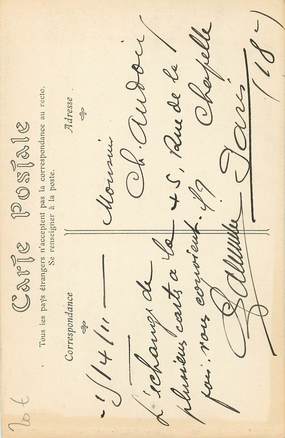 Carte Postale
Tous les pays étrangers n'acceptent pas la correspondance au recto.
Se renseigner à la poste.
Correspondance
Adresse
-1/14/11-
L'échange de
plusieurs carts a la
fois. vous convient-
Monsieur
Ch. Audoir
45, Rue de la
Chapelle
Paris (18e)
20 €